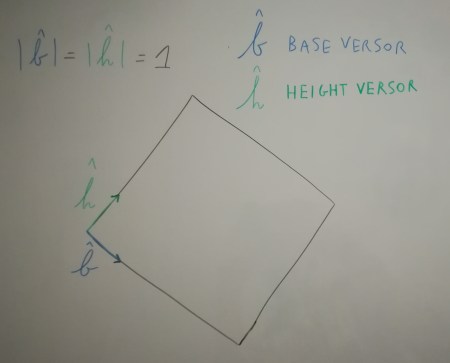 |b̂| = |ĥ| = 1
b̂ BASE VERSOR
ĥ HEIGHT VERSOR
ĥ
b̂